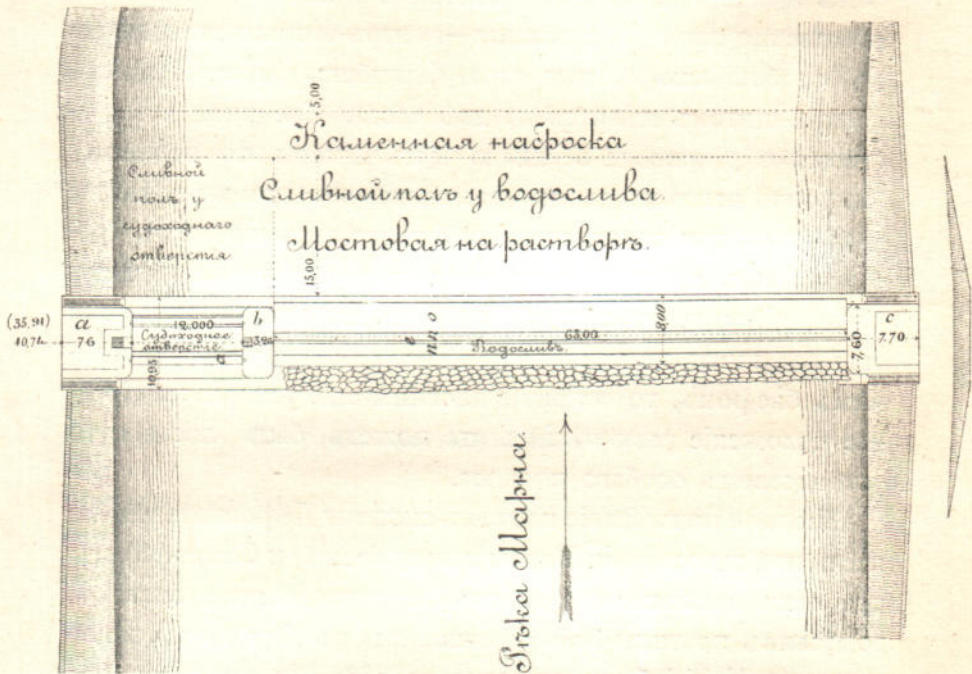 5,00
Каменная наброска
Сливной
полъ у
судоходнаго
отверстія
Сливной полъ у водослива.
Мостовая на растворѣ.
15,00
(35,91)
40,74
a
7 6
12,000
Судоходное
отверстіе
10,95
d
b
3,20
e
п.п о
63,00
Водосливъ.
8,00
7,60
c
7.70
Рѣка Марна.